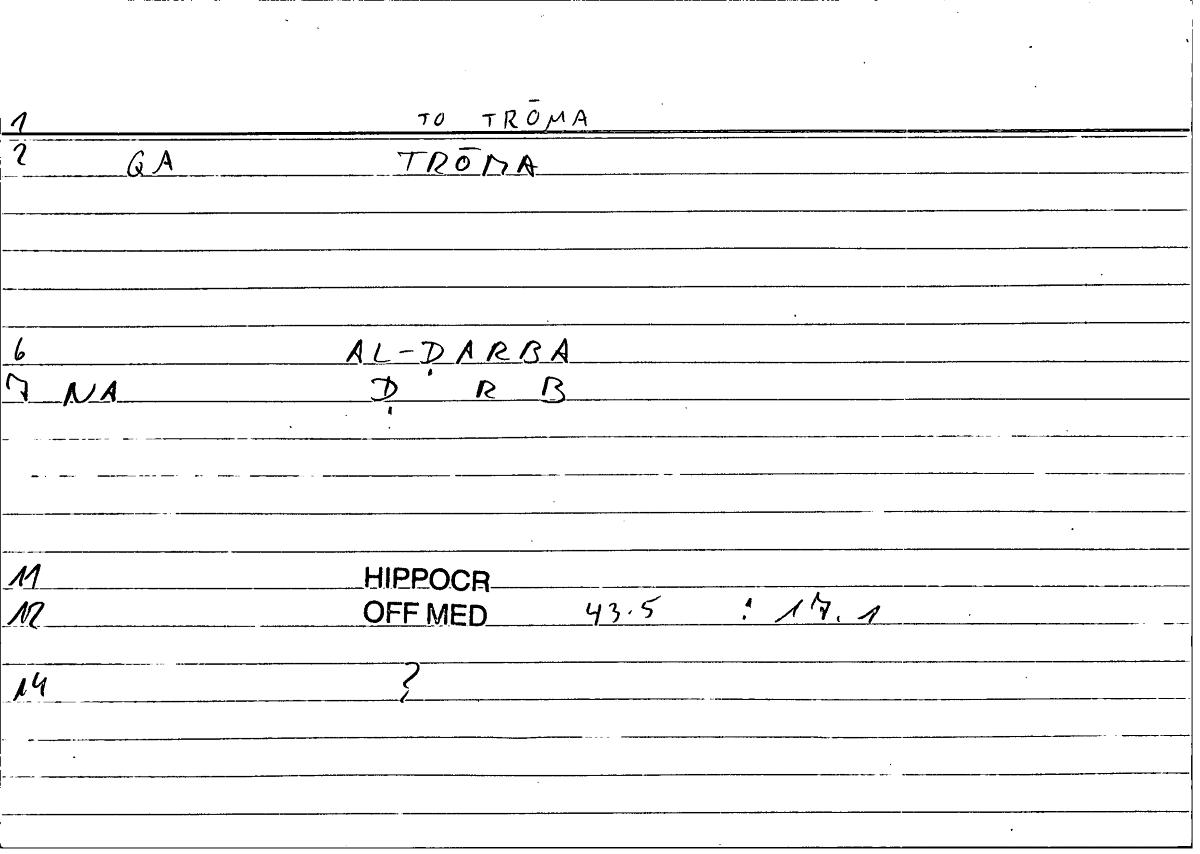 1 TO TRŌMA
2 GA TRŌMA
6 AL-ḌARBA
7 NA Ḍ R B
11 HIPPOCR
12 OFF MED 43.5 : 17.1
14 ?